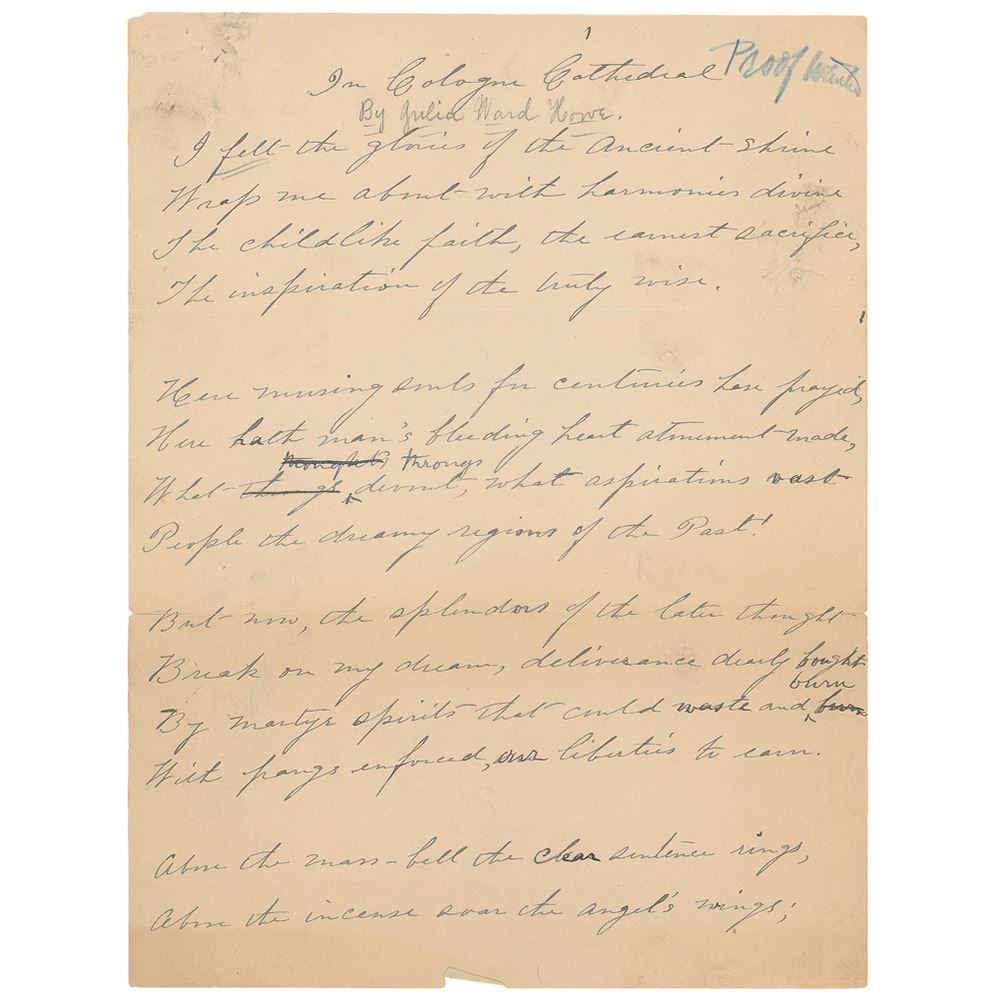 In Cologne Cathedral
Proof Wanted
By Julia Ward Howe.
I felt the glories of the Ancient Shrine
Wrap me about with harmonies divine
The childlike faith, the earnest sacrifice,
The inspiration of the truly wise.
Here musing souls for centuries have prayed,
Here hath man's bleeding heart atonement made,
thoughts throngs
What things devout, what aspirations vast
People the dreamy regions of the Past!
But now, the splendors of the later thought
Break on my dream, deliverance dearly bought
burn
By martyr spirits that could waste and burn
With pangs enforced, our liberties to earn.
Above the mass-bell the clear sentence rings,
Above the incense soar the angel's wings;